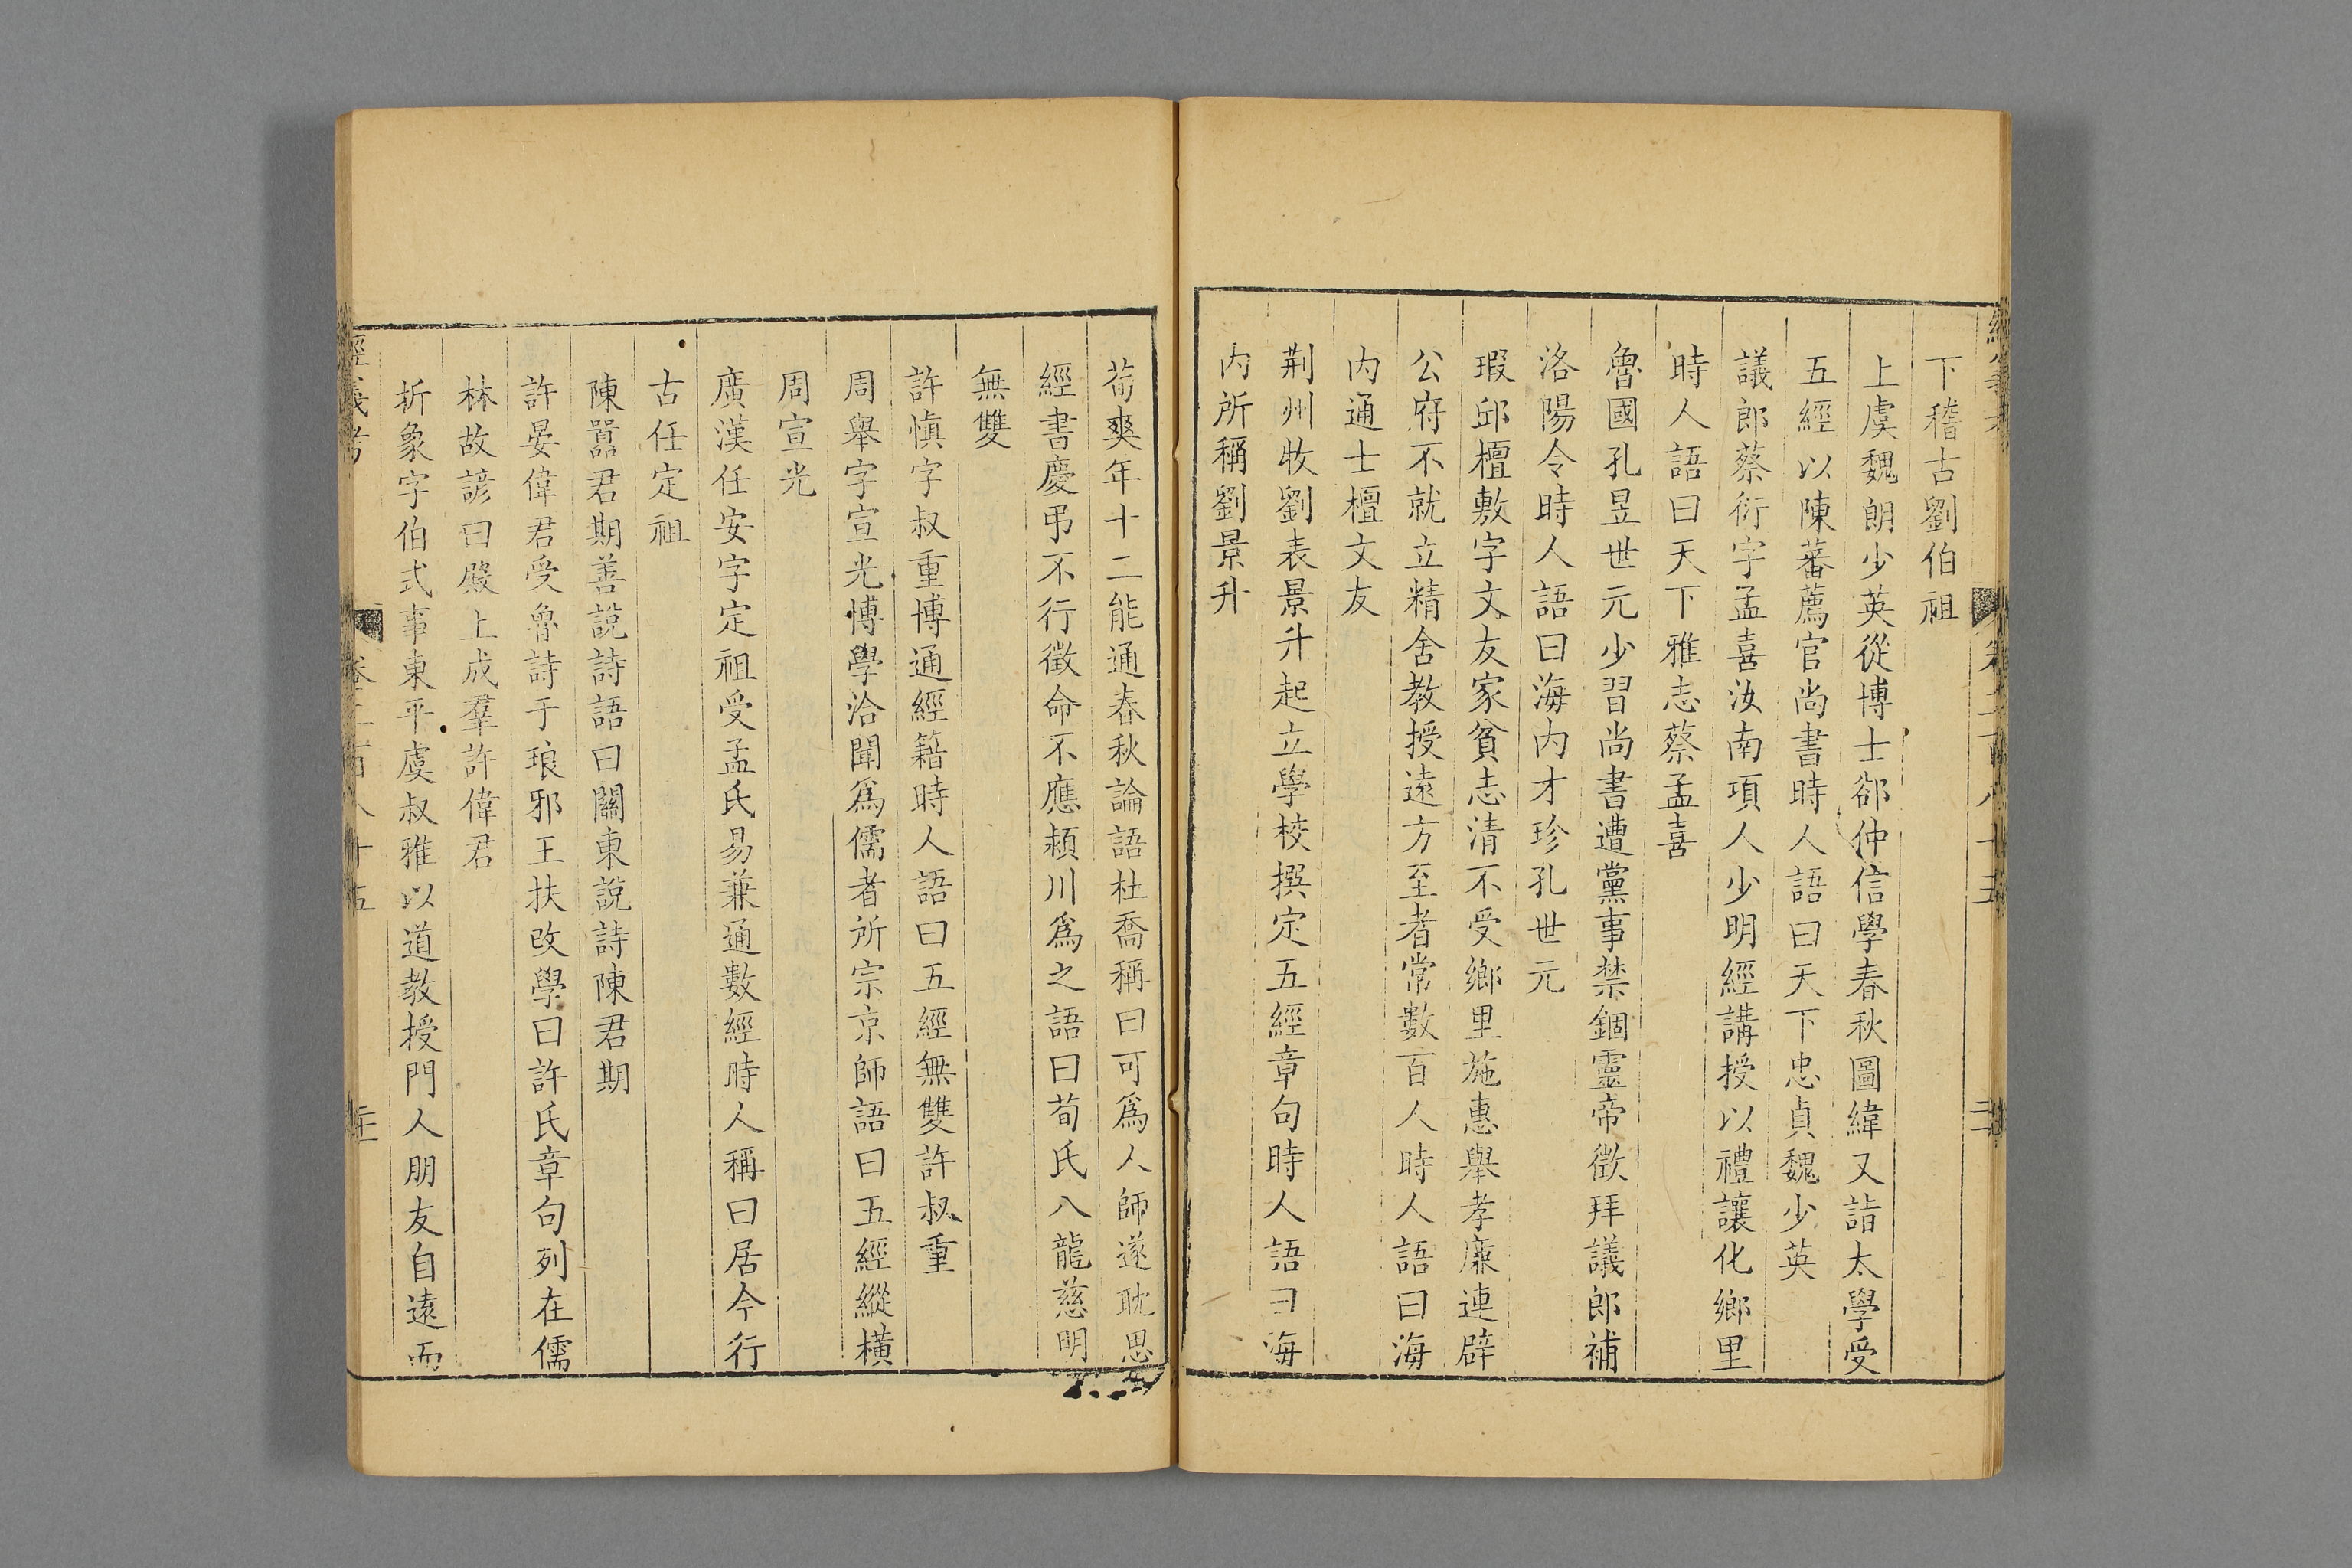 下稽古劉伯祖
上虞魏朗少英從博士郤仲信學春秋圖緯又詣太學受
五經以陳蕃薦官尚書時人語曰天下忠貞魏少英
議郎蔡衍字孟喜汝南項人少明經講授以禮讓化鄉里
時人語曰天下雅志蔡孟喜
魯國孔昱世元少習尚書遭黨事禁錮靈帝徵拜議郎補
洛陽令時人語曰海內才珍孔世元
瑕邱檀敷字文友家貧志清不受鄉里施惠舉孝廉連辟
公府不就立精舍教授遠方至者常數百人時人語曰海
內通士檀文友
荆州牧劉表景升起立學校撰定五經章句時人語曰海
內所稱劉景升
荀爽年十二能通春秋論語杜喬稱曰可爲人師遂耽思
經書慶弔不行徵命不應潁川爲之語曰荀氏八龍慈明
無雙
許愼字叔重博通經籍時人語曰五經無雙許叔重
周舉字宣光博學洽聞爲儒者所宗京師語曰五經縱橫
周宣光
廣漢任安字定祖受孟氏易兼通數經時人稱曰居今行
古任定祖
陳囂君期善說詩語曰關東說詩陳君期
許晏偉君受魯詩于琅邪王扶改學曰許氏章句列在儒
林故諺曰殿上成羣許偉君
折象字伯式事東平虞叔雅以道教授門人朋友自遠而
經義考 卷二百八十五